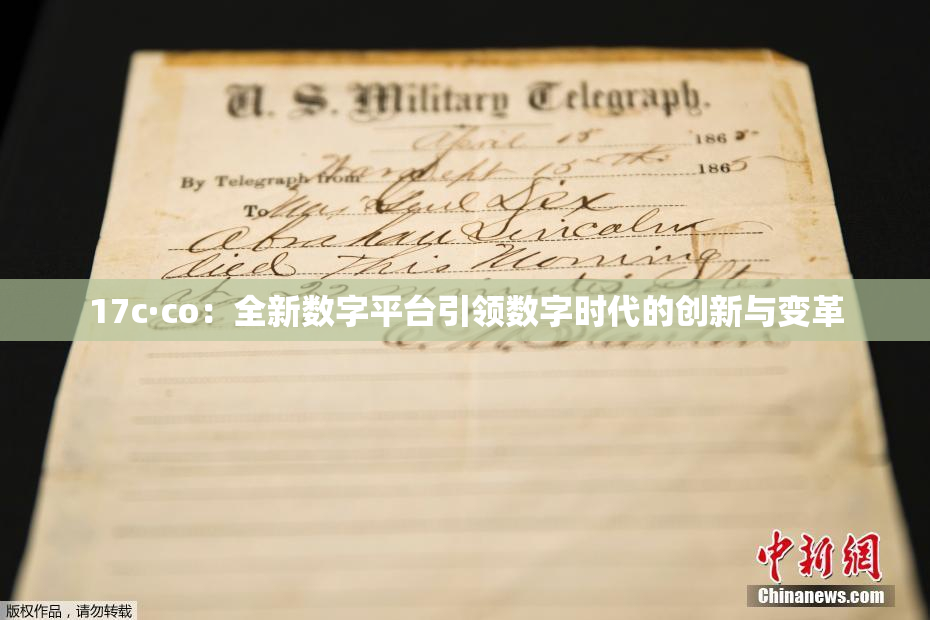 U. S. Military Telegraph.
April 15 1865
By Telegraph from War Dept 15th 1865
To Maj Genl Dix
Abraham Lincoln
died This Morning
at 22 minutes after
17c·co：全新数字平台引领数字时代的创新与变革
中新网
Chinanews.com
版权作品，请勿转载